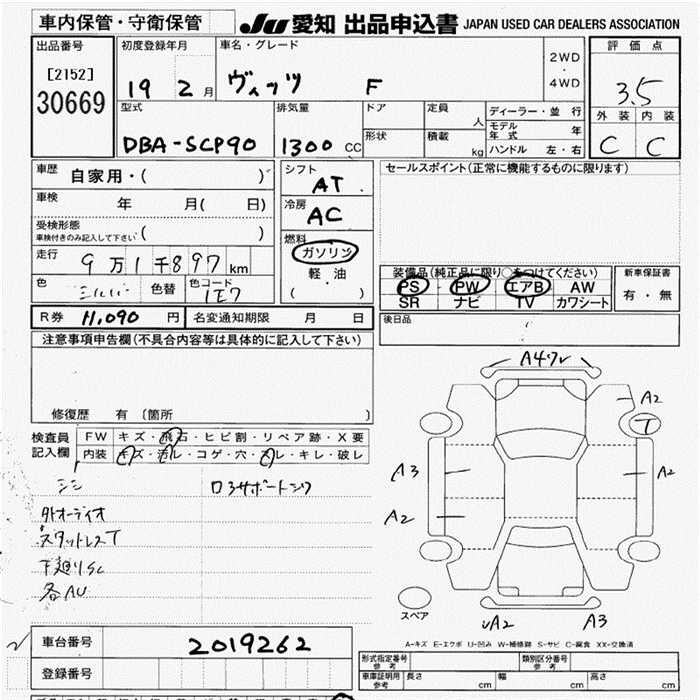 車内保管・守衛保管 JU 愛知 出品申込書 JAPAN USED CAR DEALERS ASSOCIATION
出品番号 初度登録年月 車名・グレード 2WD ・ 4WD 評価点
[2152] 30669 19 2月 ヴィッツ F 3.5
型式 排気量 ドア 定員 人 ディーラー・並行 外装 内装
DBA-SCP90 1300 CC 形状 積載 kg モデル年式 年 C C
ハンドル 左・右
車歴 自家用・( ) シフト AT セールスポイント(正常に機能するものに限ります)
車検 年 月( 日) 冷房 AC
受検形態 車検付きのみ記入して下さい ( ) 燃料 ガソリン
走行 9万1千897km 軽油 装備品(純正品に限り○をつけてください) 新車保証書
色 シルバー 色替 色コード 1E7 ( ) PS・PW・エアB・AW 有・無
SR ナビ TV カワシート
R券 11,090 円 名変通知期限 月 日 後日品
注意事項申告欄(不具合内容等は具体的に記入して下さい)
A47ル
修復歴 有 〔箇所 〕 A2
検査員 FW キズ・飛石・ヒビ割・リペア跡・X要 T
記入欄 内装 キズ・汚レ・コゲ・穴・スレ・キレ・破レ
A3 A2
A2
外オーディオ
スタットレスT
下廻りSC
各AU
スペア
UA2 A3
A-キズ E-エクボ U-凹み W-補修跡 S-サビ C-腐食 XX-交換済
車台番号 2019262
登録番号
形式指定番号 参考 類別区分番号 参考
車庫証明用 参考 長さ cm 幅 cm 高さ cm